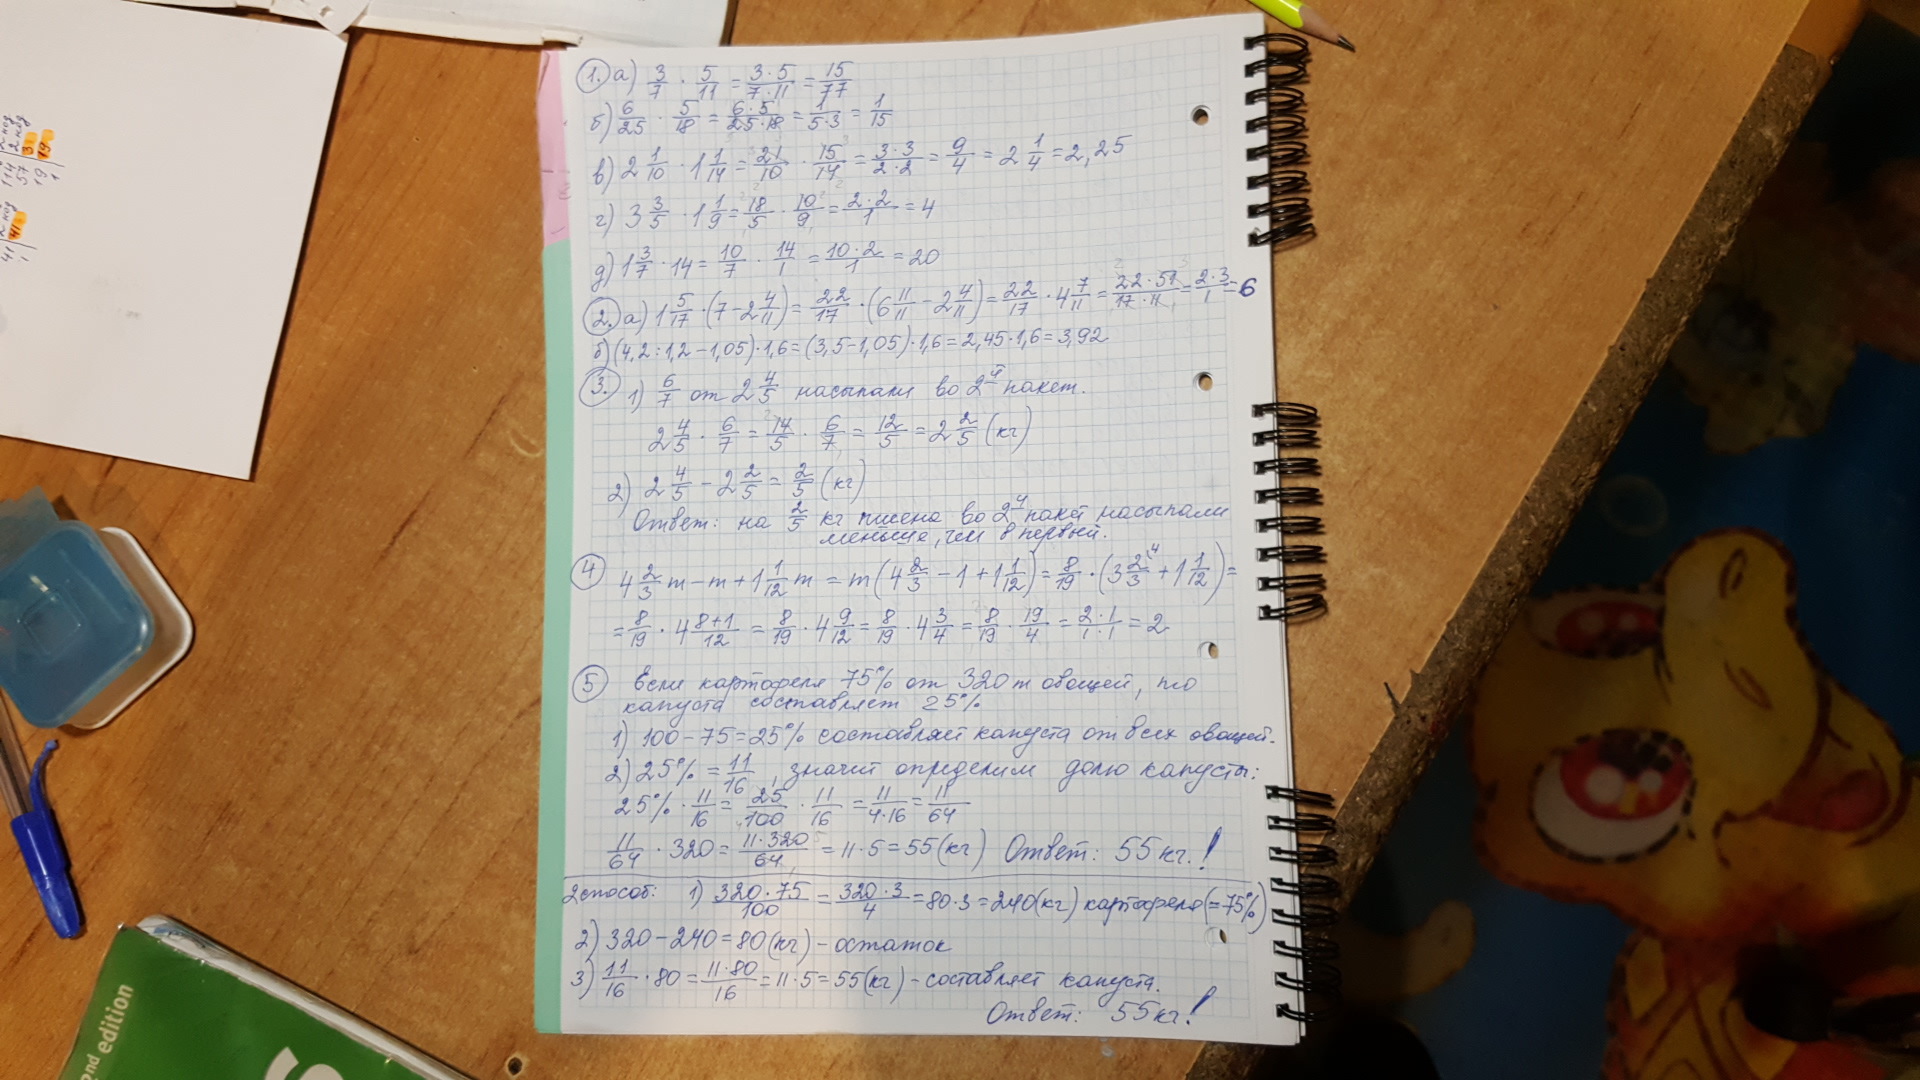 1. а) 3/7 · 5/11 = 3·5/7·11 = 15/77
б) 6/25 · 5/18 = 6·5/25·18 = 1/5·3 = 1/15
в) 2 1/10 · 1 1/14 = 21/10 · 15/14 = 3·3/2·2 = 9/4 = 2 1/4 = 2,25
г) 3 3/5 · 1 1/9 = 18/5 · 10/9 = 2·2/1 = 4
д) 1 3/7 · 14 = 10/7 · 14/1 = 10·2/1 = 20
2. а) 1 5/17 · (7 - 2 4/11) = 22/17 · (6 11/11 - 2 4/11) = 22/17 · 4 7/11 = 22·51/17·11 = 2·3/1 = 6
б) (4,2 : 1,2 - 1,05) · 1,6 = (3,5 - 1,05) · 1,6 = 2,45 · 1,6 = 3,92
3. 1) 6/7 от 2 4/5 насыпали во 2й пакет.
2 4/5 · 6/7 = 14/5 · 6/7 = 12/5 = 2 2/5 (кг)
2) 2 4/5 - 2 2/5 = 2/5 (кг)
Ответ: на 2/5 кг пшена во 2й пакет насыпали
меньше, чем в первый.
4 4 2/3 m - m + 1 1/12 m = m (4 2/3 - 1 + 1 1/12) = 8/19 · (3 2/3 + 1 1/12) =
= 8/19 · 4 8+1/12 = 8/19 · 4 9/12 = 8/19 · 4 3/4 = 8/19 · 19/4 = 2·1/1·1 = 2
5 Если картофеля 75% от 320 т овощей, то
капуста составляет 25%
1) 100 - 75 = 25% составляет капуста от всех овощей.
2) 25% = 11/16, значит определим долю капусты:
25% · 11/16 = 25/100 · 11/16 = 11/4·16 = 11/64
11/64 · 320 = 11·320/64 = 11·5 = 55 (кг) Ответ: 55 кг.!
2 способ: 1) 320·75/100 = 320·3/4 = 80·3 = 240 (кг) картофеля (=75%)
2) 320 - 240 = 80 (кг) - остаток
3) 11/16 · 80 = 11·80/16 = 11·5 = 55 (кг) - составляет капуста.
Ответ: 55 кг!
2nd edition